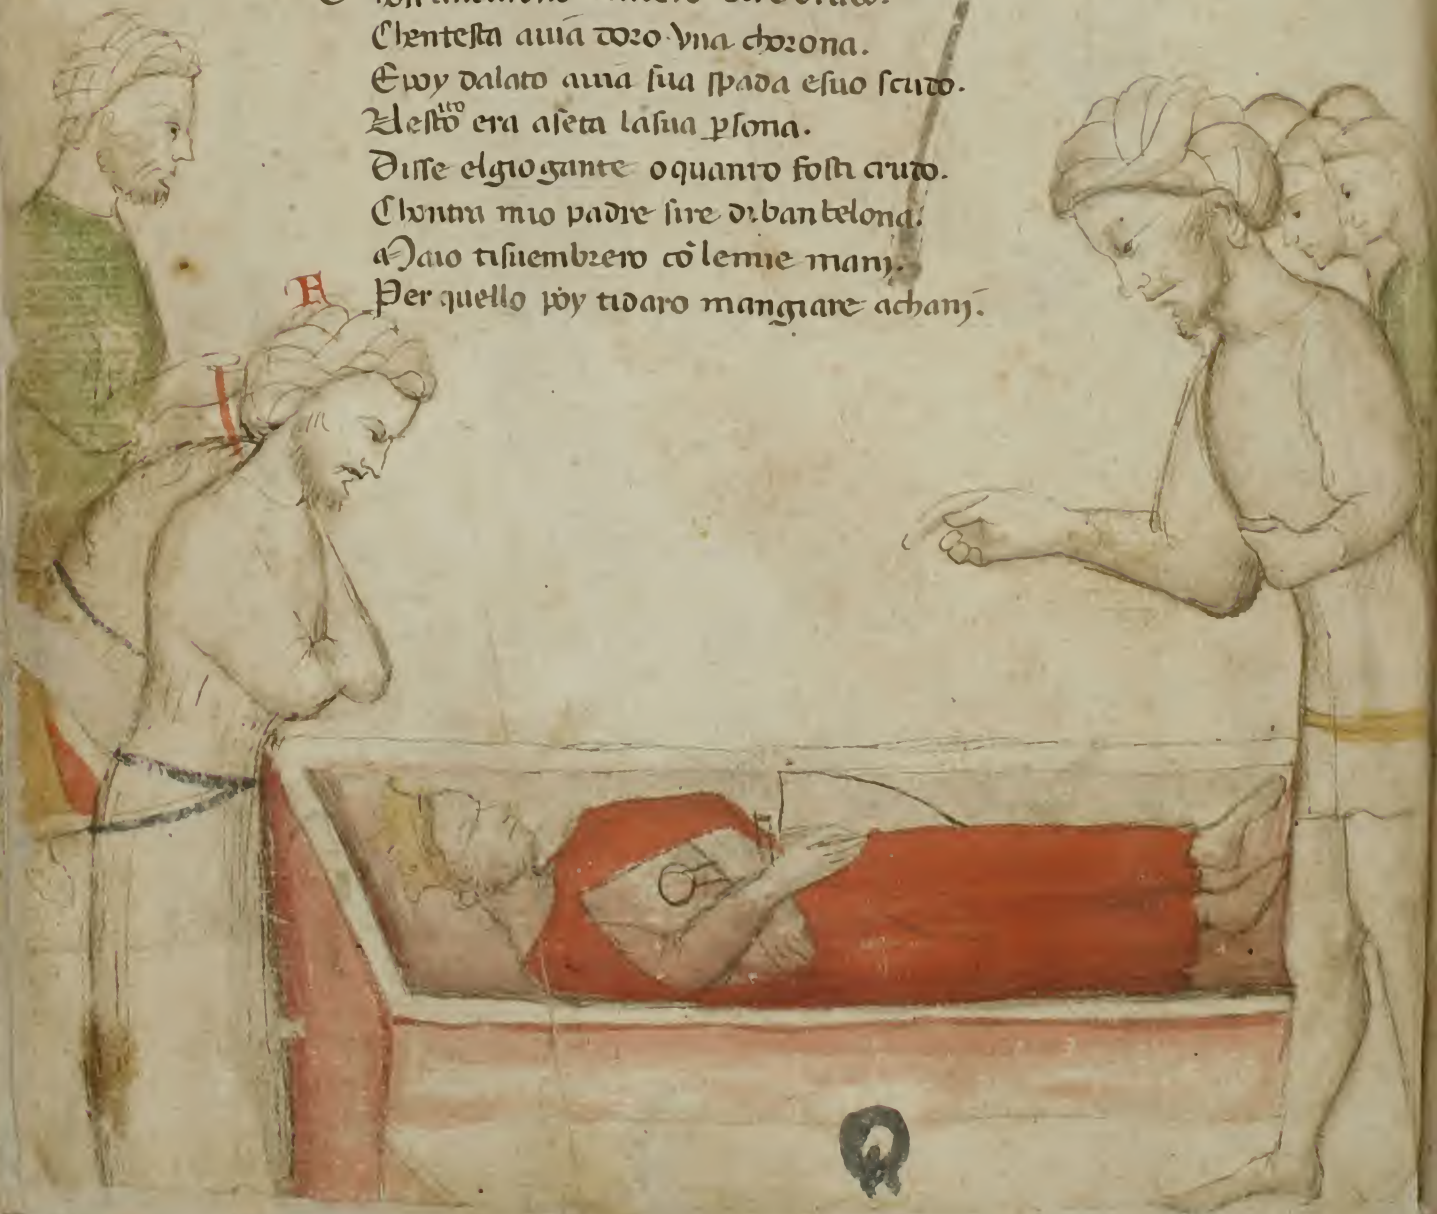 Chentesta auia doro vna chorona.
Epoy dalato auia sua spada esuo scudo.
Uestito era aseta lasua psona.
Disse elgiogante oquanto fosti crudo.
Chontra mio padre sire dibanbelona.
Maio tisuembrero cō lemie manj.
A Per quello poy tidaro mangiare achanj.